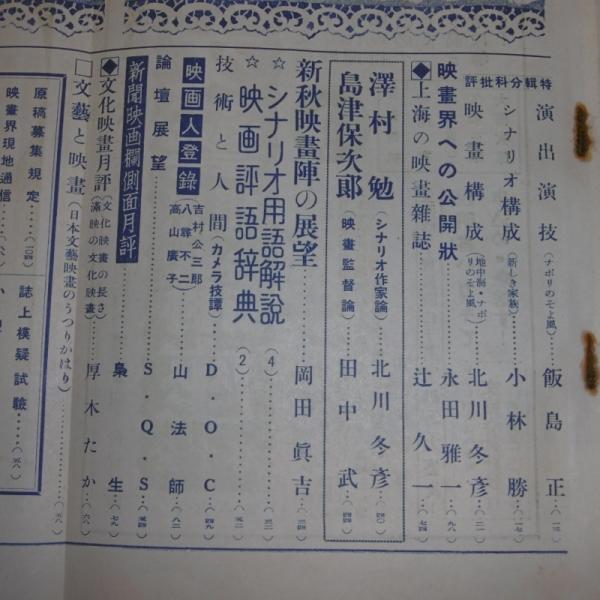 特輯分科批評
演出演技（ナポリのそよ風）…飯島正…（一三）
シナリオ構成（新しき家族）…小林勝…（一七）
映畫構成（地中海・ナポリのそよ風）…北川冬彥…（二一）
映畫界への公開狀…永田雅一…（九八）
◆上海の映畫雜誌…辻久一…（七四）
澤村勉（シナリオ作家論）…北川冬彥…（四〇）
島津保次郎（映畫監督論）…田中武…（四四）
新秋映畫陣の展望…岡田眞吉…（三四）
☆シナリオ用語解説（4）…（三一）
☆映画評語辞典（2）…（五三）
技術と人間（カメラ技譚）…D・O・C…（四九）
映画人登錄 吉村公三郎 八尋不二 高山廣子
論壇展望…山法師…（八二）
新聞映画欄側面月評…S・Q・S…（五四）
◆文化映畫月評（文化映畫の長さ 滿映の文化映畫）…梟生…（七九）
厚木たか…（六八）
□文藝と映畫（日本文藝映畫のうつりかはり）…（五八）
原稿募集規定…（三四）
映畫界現地通信…（六八）
誌上模疑試驗…（五八）